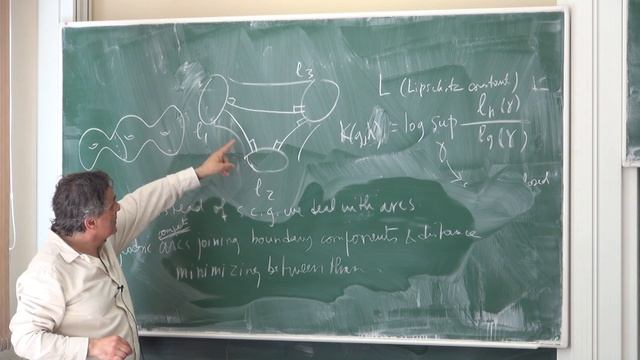 l₃
l₁
l₂
L (Lipschitz constant)
K(g,h) = log sup l_h(γ) / l_g(γ)
γ
closed
of s.c.g. we deal with arcs
arcs joining boundary components & distance
minimizing between them.